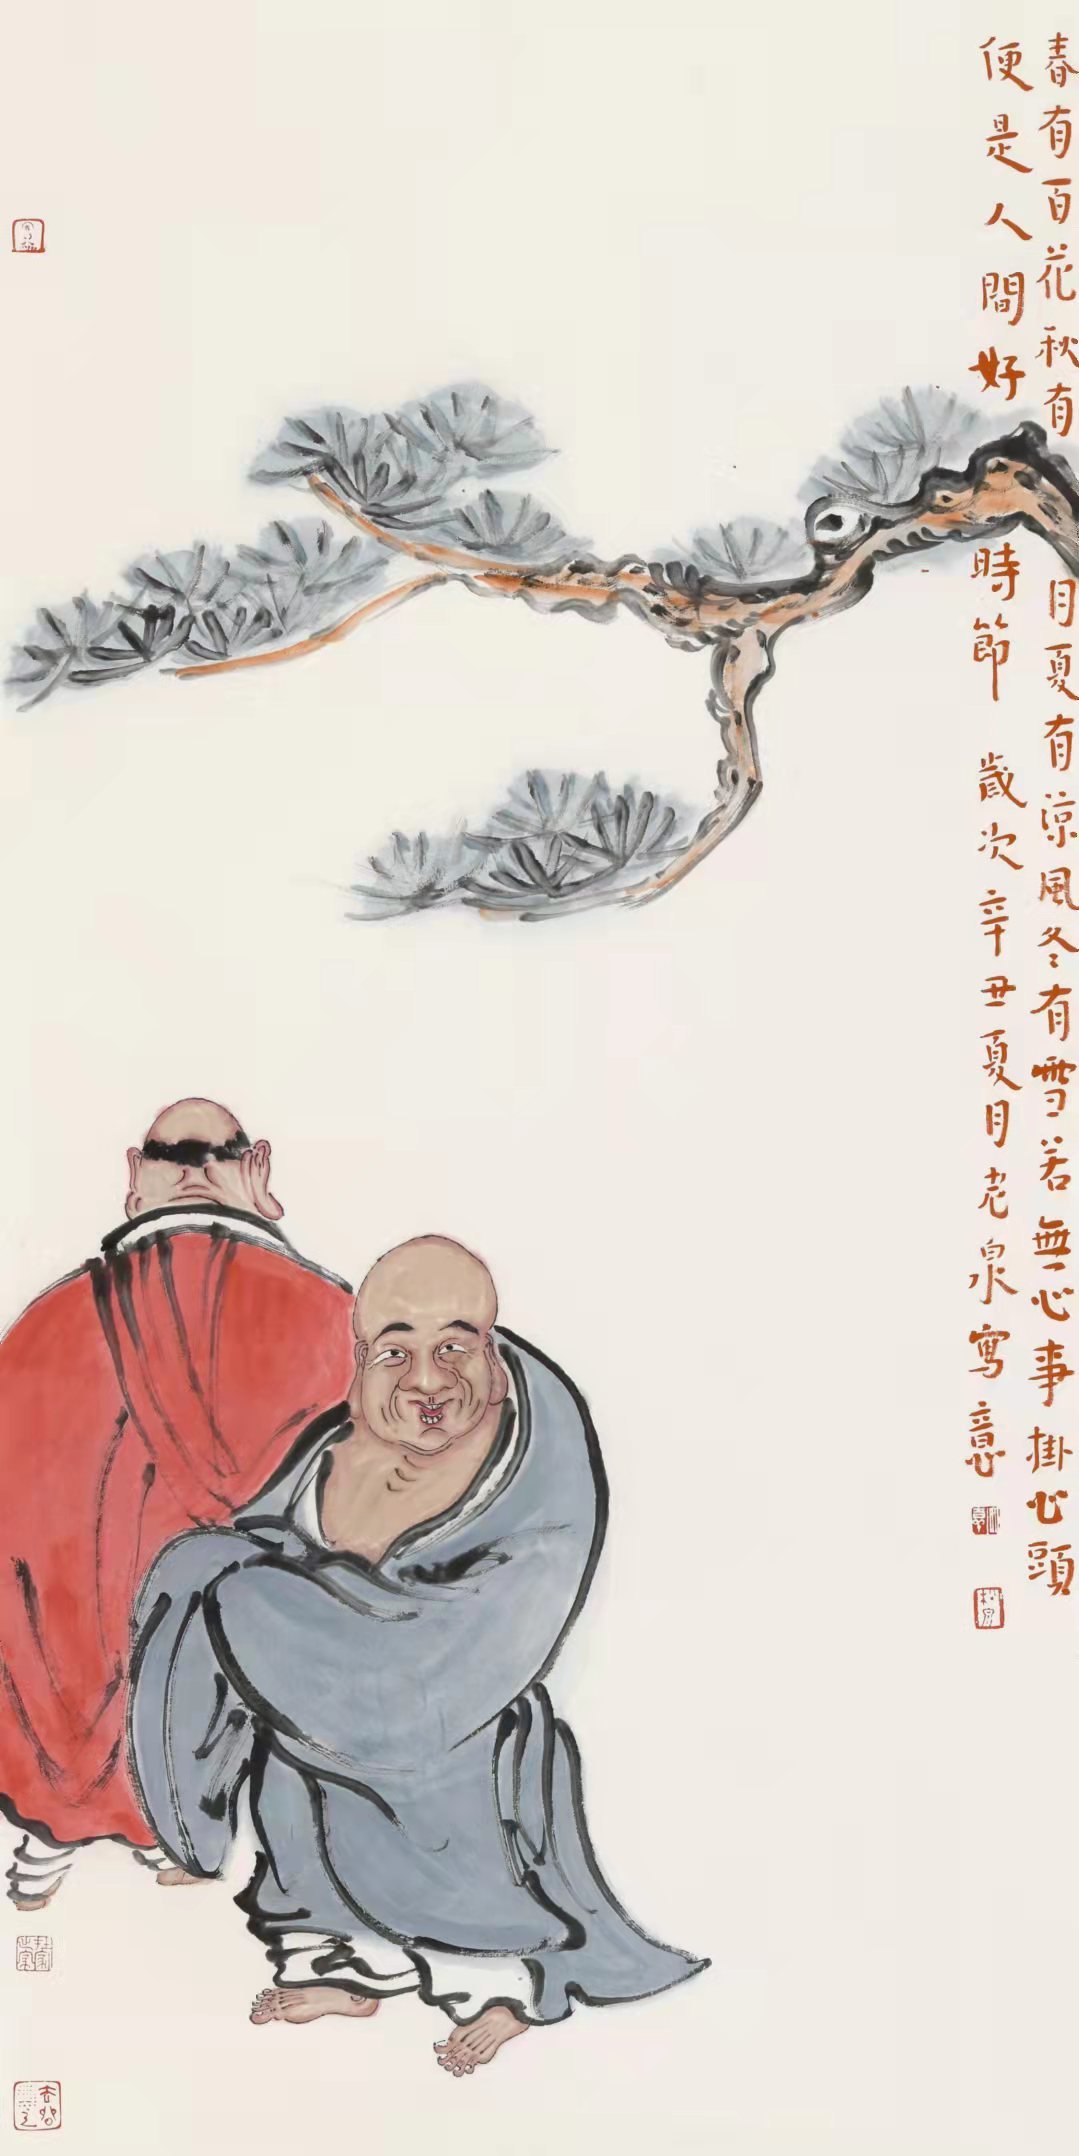 春有百花秋有月夏有涼風冬有雪若無心事掛心頭
便是人間好時節 歲次辛丑夏月老泉寫意